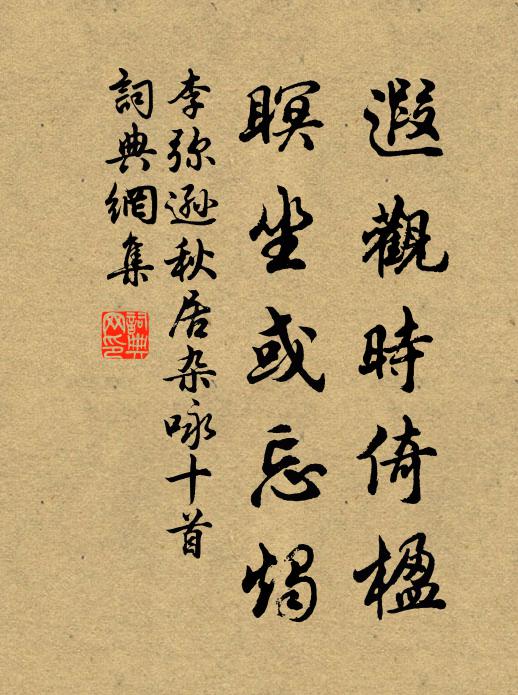 遐觀時倚楹
瞑坐或忘燭
李弥遜秋居杂咏十首
詞典網集
詞典
网印